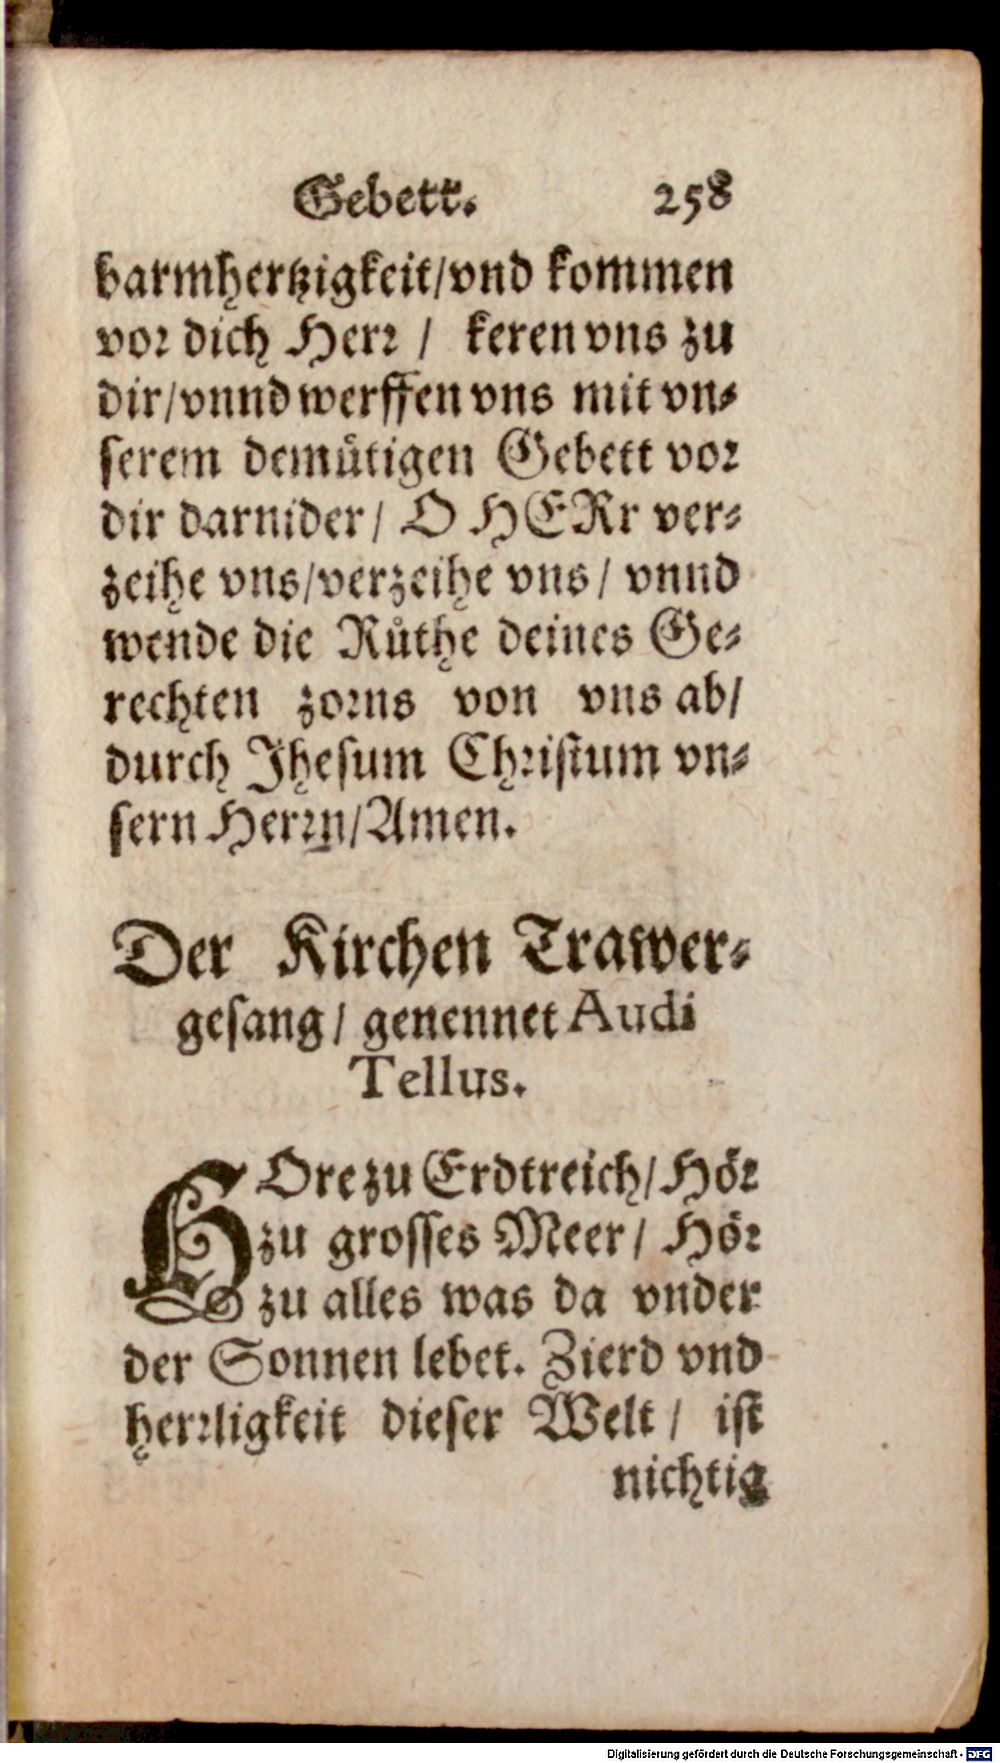 Gebett. 258
barmhertzigkeit/vnd kommen
vor dich Herr / keren vns zu
dir/vnnd werffen vns mit vn⸗
serem demuͤtigen Gebett vor
dir darnider/ O HERr ver⸗
zeihe vns/verzeihe vns/ vnnd
wende die Ruͦthe deines Ge⸗
rechten zorns von vns ab/
durch Jhesum Christum vn⸗
sern Herrn/Amen.
Der Kirchen Trawer⸗
gesang/ genennet Audi
Tellus.
HOre zu Erdtreich/Hoͤr
zu grosses Meer/ Hoͤr
zu alles was da vnder
der Sonnen lebet. Zierd vnd
herrligkeit dieser Welt/ ist
nichtig
Digitalisierung gefördert durch die Deutsche Forschungsgemeinschaft - DFG